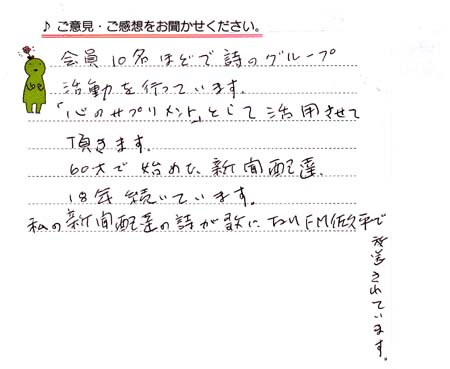 ♪ ご意見・ご感想をお聞かせください。
会員10名ほどで詩のグループ
活動を行っています。
「心のサプリメント」として活用させて
頂きます。
60才で始めた新聞配達、
18年続いています。
私の新聞配達の詩が歌になりFM
放送されています。